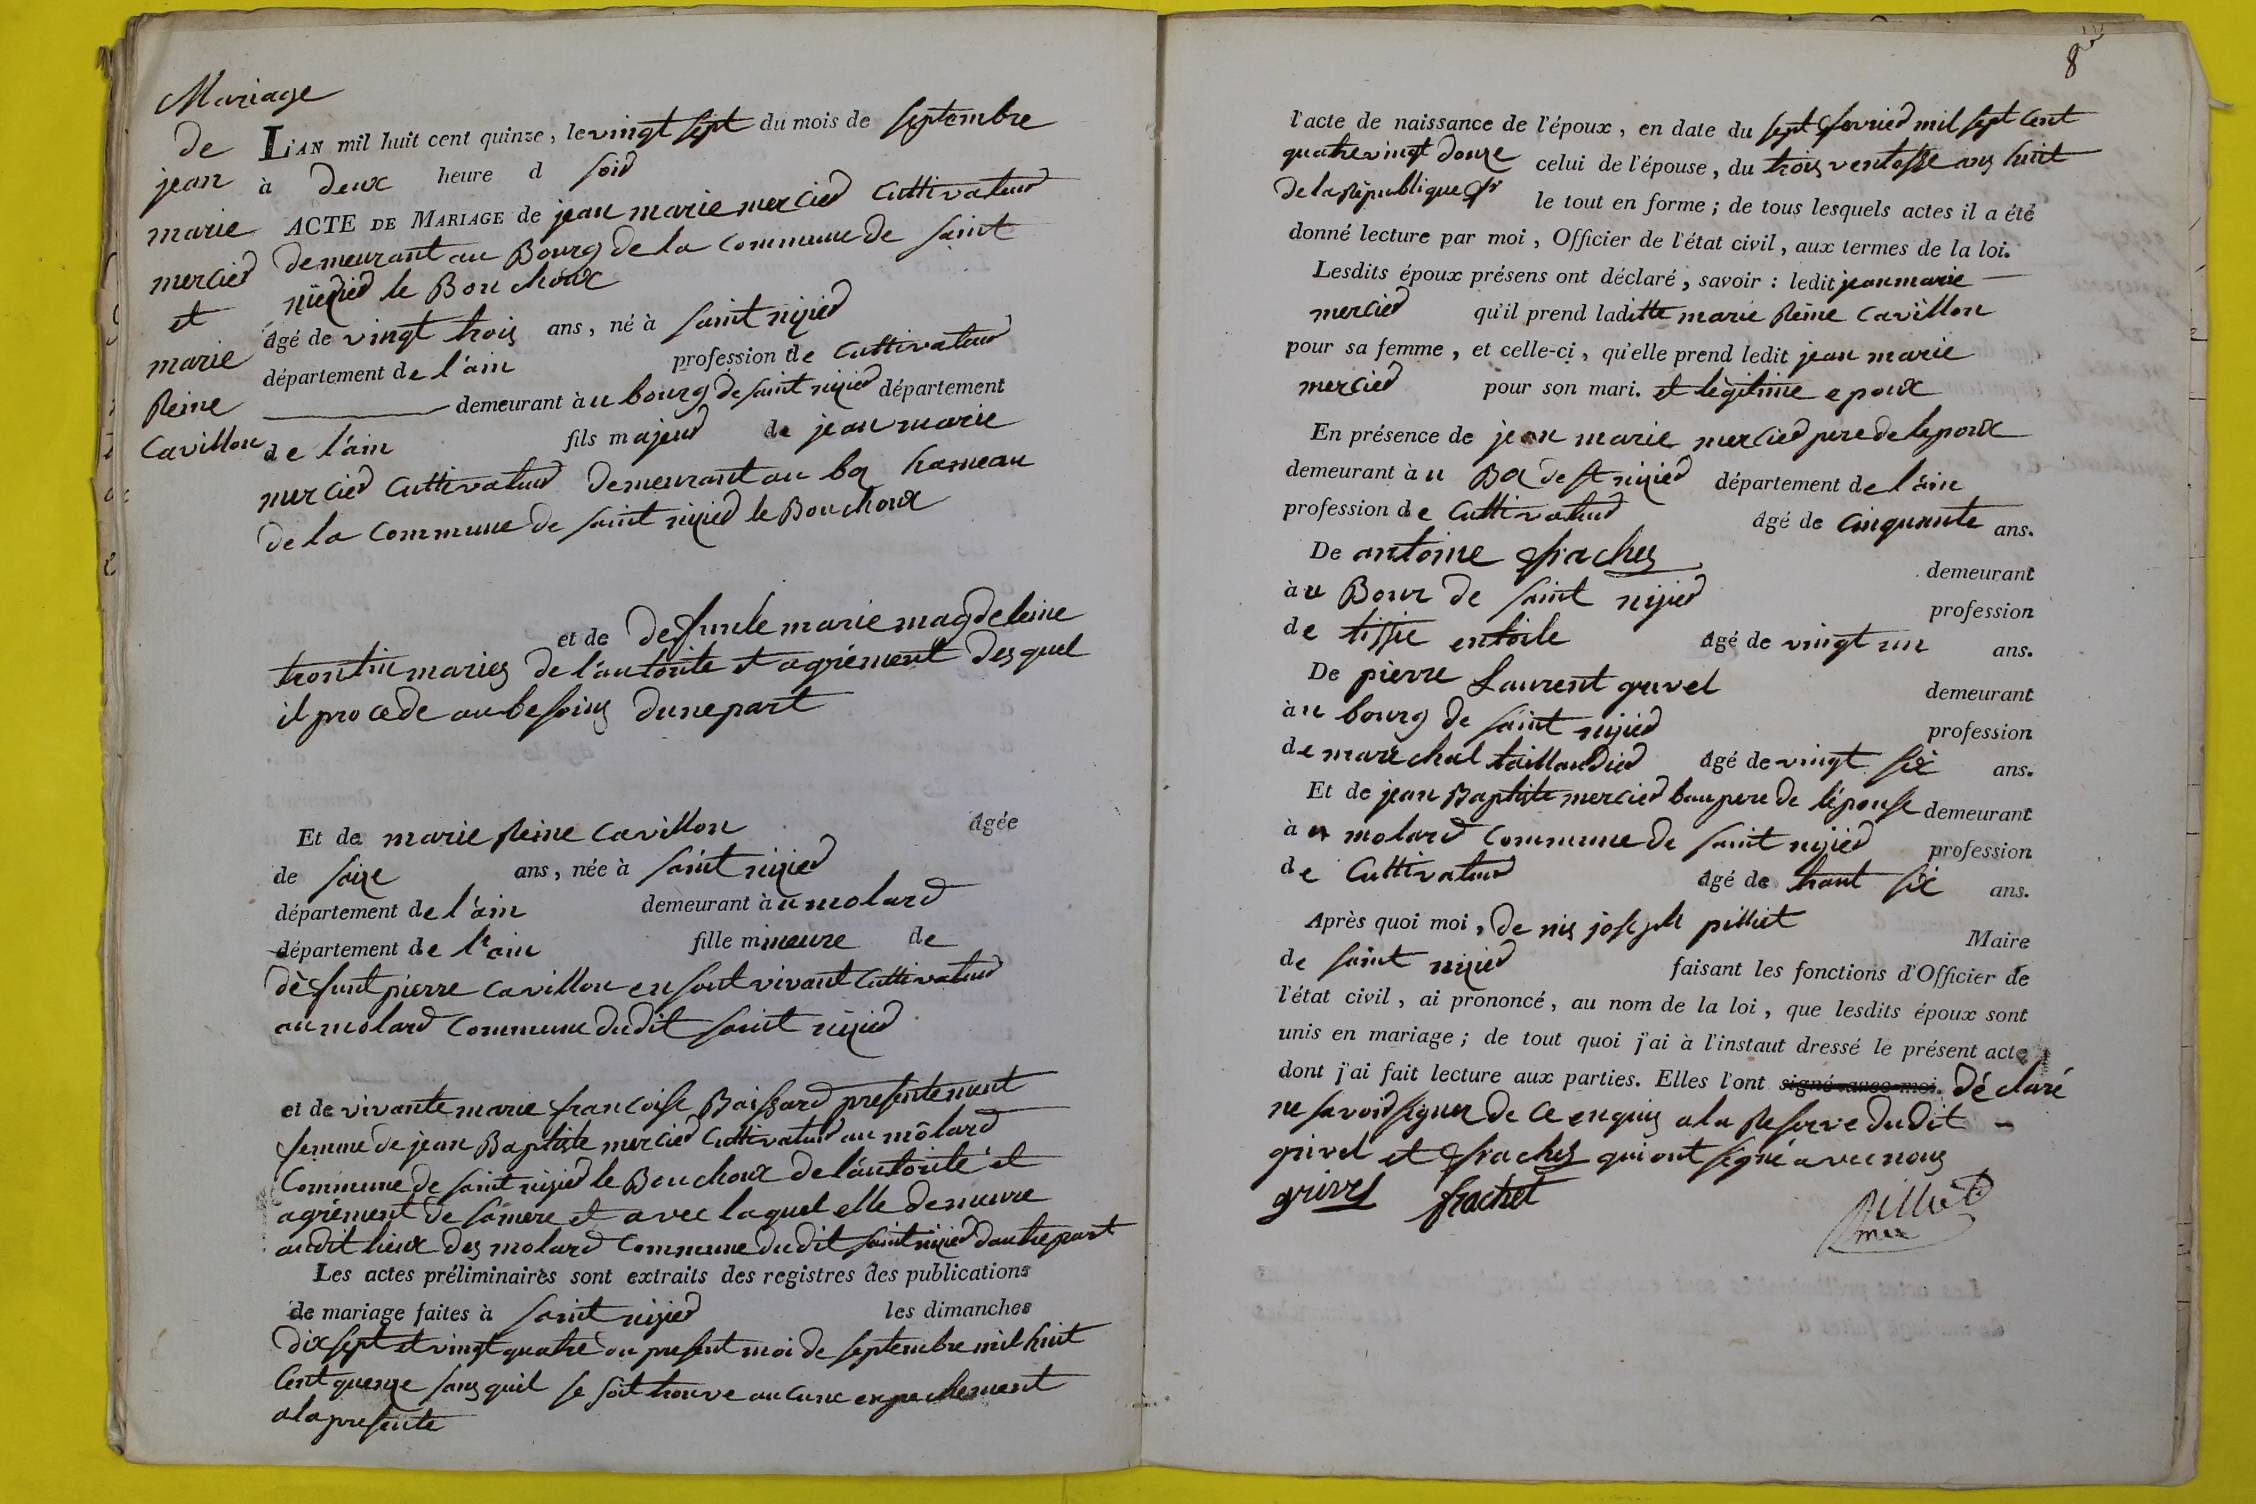 Mariage
de
jean
marie
mercier
et
marie
Reine
Cavillon
L'AN mil huit cent quinze, le vingt sept du mois de septembre
à deux heure d soir
ACTE DE MARIAGE de jean marie mercier Cultivateur
demeurant au Bourg de la commune de saint
nizier le Bouchoux
âgé de vingt trois ans, né à saint nizier
département de l'ain profession de Cultivateur
demeurant à u bourg de saint nizier département
de l'ain fils majeur de jean marie
mercier Cultivateur demeurant au bg hameau
de la commune de saint nizier le Bouchoux
et de defunte marie magdeleine
trontin maries de l'autorite et agrément desquel
il procede au besoins dune part
Et de marie Reine Cavillon âgée
de saize ans, née à saint nizier
département de l'ain demeurant à u molard
département de l'ain fille mineure de
défunt pierre Cavillon en sont vivant Cultivateur
au molard Commune dudit saint nizier
et de vivante marie francoise Baissard presentement
femme de jean Baptiste mercier Cultivateur au môlard
Commune de saint nizier le Bouchoux de l'autorité et
agrément de sa mere et avec laquel elle demeure
audit lieux des molard Commune dudit saint nizier dautre part
Les actes préliminaires sont extraits des registres des publications
de mariage faites à saint nizier les dimanches
dix sept et vingt quatre du present moi de septembre mil huit
Cent quenze sans quil se soit trouve aucune enpechement
a la presente
8
l'acte de naissance de l'époux, en date du sept fevrier mil sept Cent
quatre vingt douze celui de l'épouse, du trois ventosse ans huit
de la République fr le tout en forme; de tous lesquels actes il a été
donné lecture par moi, Officier de l'état civil, aux termes de la loi.
Lesdits époux présens ont déclaré, savoir: ledit jean marie
mercier qu'il prend laditte marie Reine Cavillon
pour sa femme, et celle-ci, qu'elle prend ledit jean marie
mercier pour son mari. et légitime epoux
En présence de jean marie mercier pere de lepoux
demeurant à u Bg de st nizier département de l'ain
profession de Cultivateur âgé de cinquante ans.
De antoine frachet demeurant
à u Bour de saint nizier profession
de tissie entoile âgé de vingt un ans.
De pierre Laurent grivel demeurant
à u bourg de saint nizier profession
de maréchal taillandier âgé de vingt six ans.
Et de jean Baptiste mercier beaupere de l'épouse demeurant
à u molard Commune de saint nizier profession
de Cultivateur âgé de trant six ans.
Après quoi moi, de nis joseph pilliet Maire
de saint nizier faisant les fonctions d'Officier de
l'état civil, ai prononcé, au nom de la loi, que lesdits époux sont
unis en mariage; de tout quoi j'ai à l'instaut dressé le présent acte
dont j'ai fait lecture aux parties. Elles l'ont signé avec moi. déclaré
ne savoir signer de ce enquis a la Reserve dudit
grivel et frachet qui ont signé avec nous
grivel frachet
Pilliet
mre